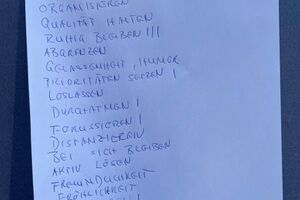 ORGANISIEREN
QUALITÄT HALTEN
RUHIG BLEIBEN!!!
ABGRENZEN
GELASSENHEIT, HUMOR
PRIORITÄTEN SETZEN!
LOSLASSEN
DURCHATMEN!
FOKUSSIEREN!
DISTANZIEREN
BEI SICH BLEIBEN
AKTIV LÖSEN
FREUNDLICHKEIT
FRÖHLICHKEIT